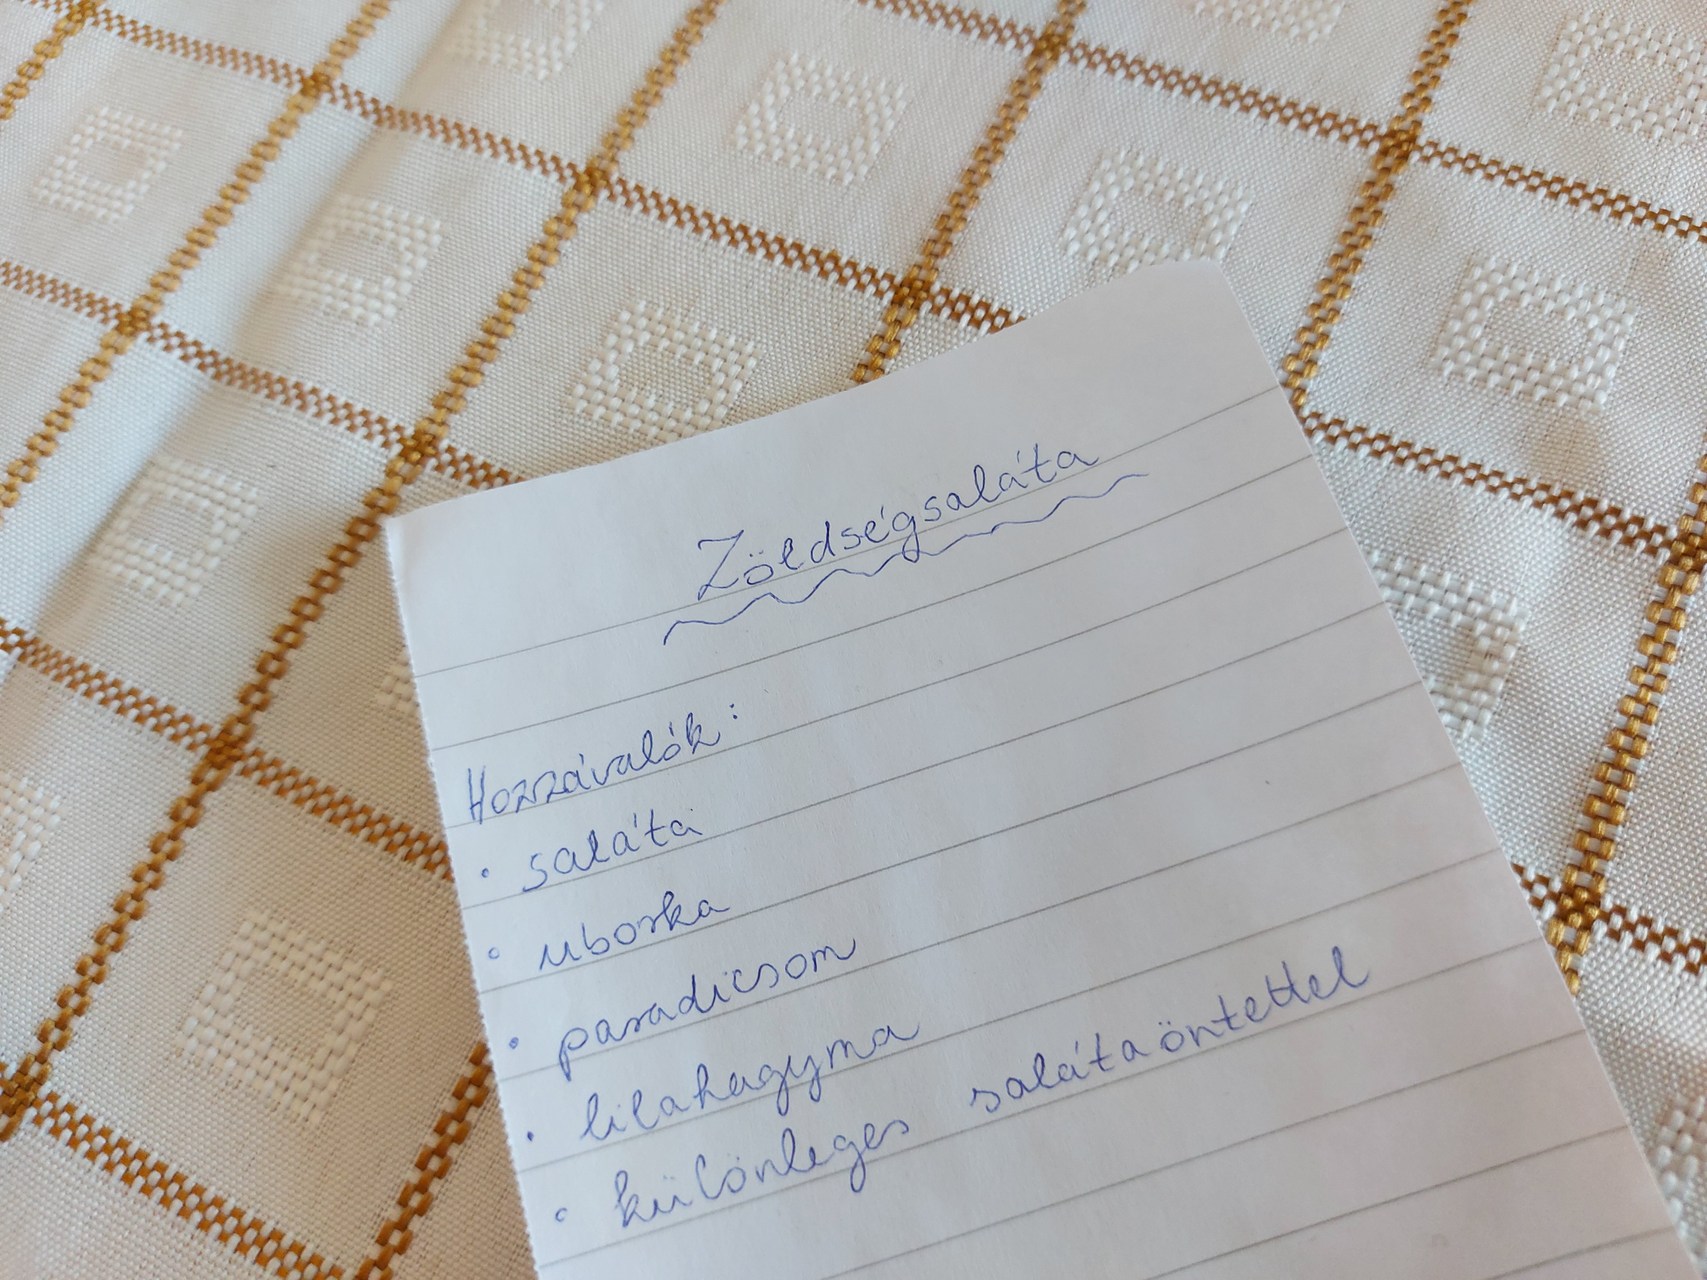 Zöldségsaláta
Hozzávalók:
• saláta
• uborka
• paradicsom
• lilahagyma
• különleges salátaöntettel